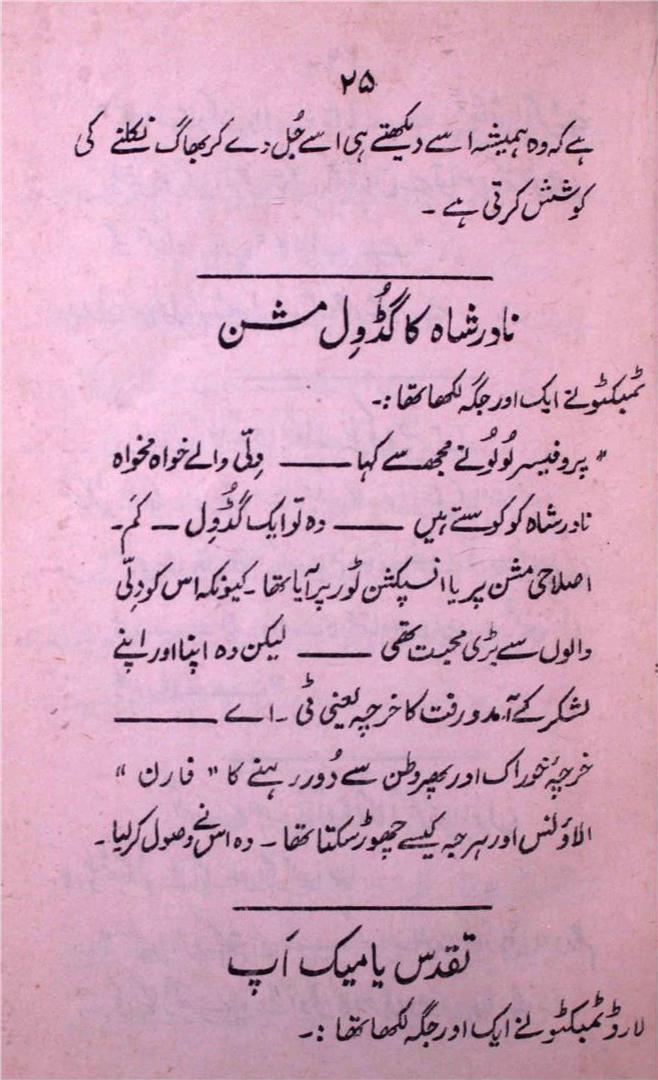 ۲۵
ہے کہ وہ ہمیشہ اسے دیکھتے ہی اسے جُل دے کر بھاگ نکلنے کی
کوشش کرتی ہے ۔
نادر شاہ کا گُڈوِل مشن
ٹمبکٹو نے ایک اور جگہ لکھا تھا :۔
" پروفیسر لُولُو نے مجھ سے کہا ــــــ دِلّی والے خواہ مخواہ
نادر شاہ کو کوستے ہیں ــــــ وہ تو ایک گُڈوِل ــ کَم ۔
اصلاحی مشن پر یا انسپکشن ٹور پر آیا تھا ۔ کیونکہ اس کو دِلّی
والوں سے بڑی محبت تھی ــــــ لیکن وہ اپنا اور اپنے
لشکر کے آمد و رفت کا خرچہ یعنی ٹی ۔ اے ــــــ
خرچۂ خوراک اور پھر وطن سے دُور رہنے کا " فارن "
الاؤنس اور ہرجہ کیسے چھوڑ سکتا تھا ۔ وہ اس نے وصول کر لیا ۔
تقدس یا میک اَپ
لارڈ ٹمبکٹو نے ایک اور جگہ لکھا تھا :۔